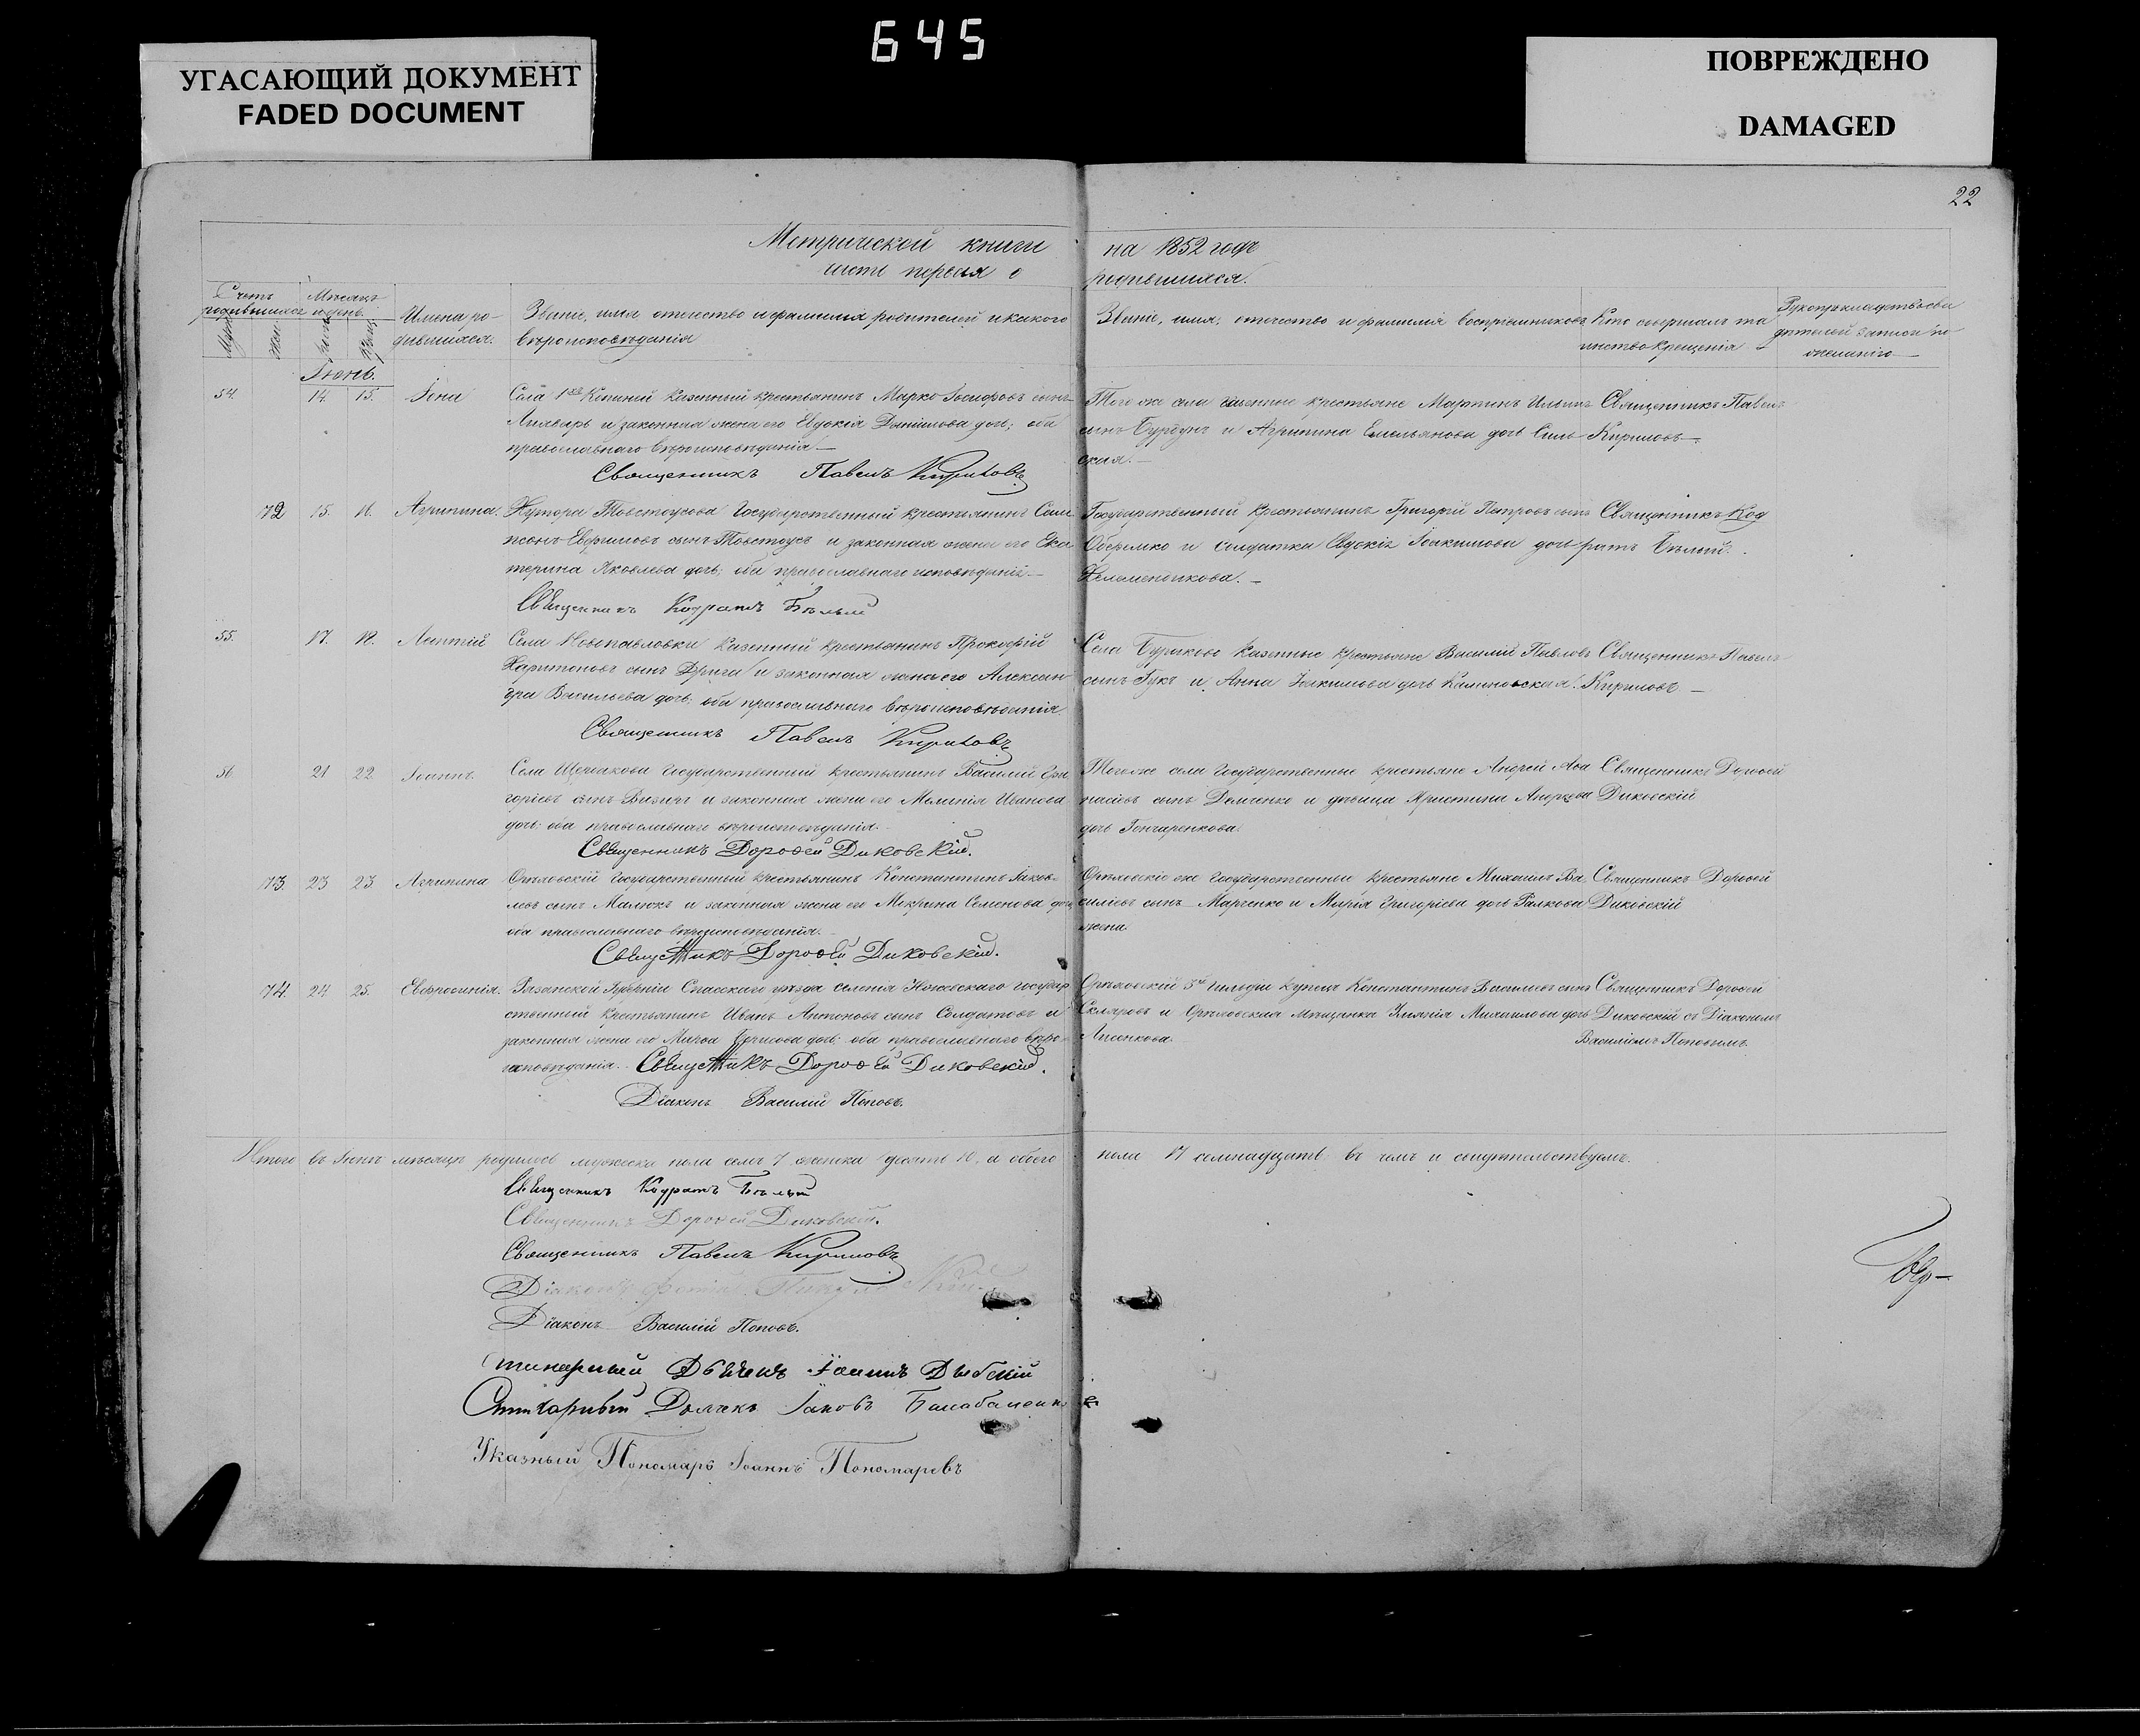 645
УГАСАЮЩИЙ ДОКУМЕНТ
FADED DOCUMENT
ПОВРЕЖДЕНО
DAMAGED
22
Метрической книги на 1852 годъ
части первыя о родившихся.
Счетъ родившихся
Мѣсяцъ и день.
Имена родившихся.
Званіе, имя отчество и фамилія родителей и какого
вѣроисповѣданія
Званіе, имя, отчество и фамилія воспріемниковъ
Кто совершалъ та
инство крещенія
Рукоприкладство сви
дѣтелей записи по
желанію
Іюнь.
54. 14. 15.
Села Казенный крестьянинъ Марко Іосифовъ сынъ
и законная жена его Евдокія Даниилова дочь; оба
православнаго вѣроисповѣданія
Священникъ Павелъ Кириловъ
Того же села казенные крестьяне Мартинъ Ильинъ
сынъ Бурдунъ и Агрипина Емельянова дочь
ская.
Священникъ Павелъ
Кириловъ
72 15. 16. Агрипина.
Хутора Товстоусова Государственный крестьянинъ Сам
псонъ Евфимовъ сынъ Товстоусъ и законная жена его Ека
терина Яковлева дочь; оба православнаго исповѣданія
Священникъ Кодратъ Бѣлый
Государственный крестьянинъ Григорій Петровъ сынъ
и солдатка Евдокія Іоакимова дочь
Священникъ Код
ратъ Бѣлый.
55. 17. 18. Леонтій
Села Новопавловки казенный крестьянинъ Прокофій
Харитоновъ сынъ Дрига и законная жена его Алексан
дра Васильева дочь; оба православнаго вѣроисповѣданія.
Священникъ Павелъ Кириловъ
Села казенные крестьяне Василій Павловъ
сынъ Гукъ и Анна Іоакимова дочь Калиновская.
Священникъ Павелъ
Кириловъ
56 21 22 Іоаннъ.
Села Щербакова Государственный крестьянинъ Василій Гри
горіевъ сынъ и законная жена его Меланія Иванова
дочь: оба православнаго вѣроисповѣданія.
Священникъ Дорофей Диковскій.
Того же села Государственные крестьяне Андрей Афа
насіевъ сынъ Демченко и дѣвица Христина Андреева
дочь Гончаренкова.
Священникъ Дорофей
Диковскій
73. 23 23 Агрипина
Орѣховскій Государственный крестьянинъ Константинъ Іаков
левъ сынъ Малюкъ и законная жена его Мокрина Семенова дочь
оба православнаго вѣроисповѣданія.
Священникъ Дорофей Диковскій.
Орѣховскіе же государственные крестьяне Михаилъ Ва
силіевъ сынъ Марченко и Марія Григоріева дочь
жена.
Священникъ Дорофей
Диковскій
74. 24 25. Евфросинія.
Рязанской Губерніи Спасскаго уѣзда селенія государ
ственный крестьянинъ Иванъ Антоновъ сынъ Солдатовъ и
законная жена его Марфа дочь: оба православнаго вѣро
исповѣданія. Священникъ Дорофей Диковскій.
Діаконъ Василій Поповъ.
Орѣховскій 3й гильдіи купецъ Константинъ Василіевъ сынъ
Скляровъ и Орѣховская мѣщанка Михаилова дочь
Лисенкова.
Священникъ Дорофей
Диковскій съ Діакономъ
Василіемъ Поповымъ.
Итого въ Іюнѣ мѣсяцѣ родилось мужеска пола семь 7 женска десять 10, а обоего пола 17 семнадцать въ чемъ и свидѣтельствуемъ.
Священникъ Кодратъ Бѣлый
Священникъ Дорофей Диковскій.
Священникъ Павелъ Кириловъ
Діаконъ
Діаконъ Василій Поповъ.
Стихарный Дьячекъ Іоаннъ
Стихарный Дьячекъ Іаковъ Балабаненко
Указный Пономарь Іоаннъ Пономаревъ